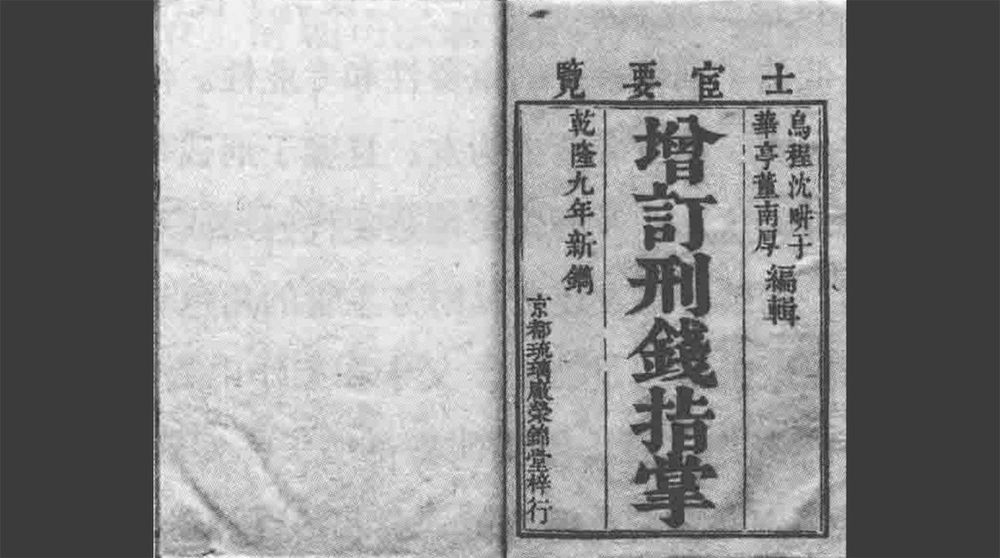 士宦要覽
烏程沈畊于
華亭董南厚
編輯
增訂刑錢指掌
乾隆九年新鐫
京都琉璃厰榮錦堂梓行